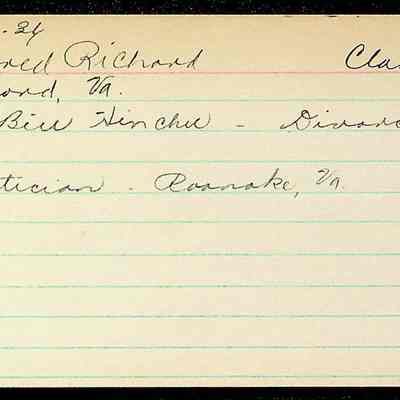 . 24
red Richard Cla
ord, Va.
Bill Hinchee - Divorc
tician - Roanoke, Va.